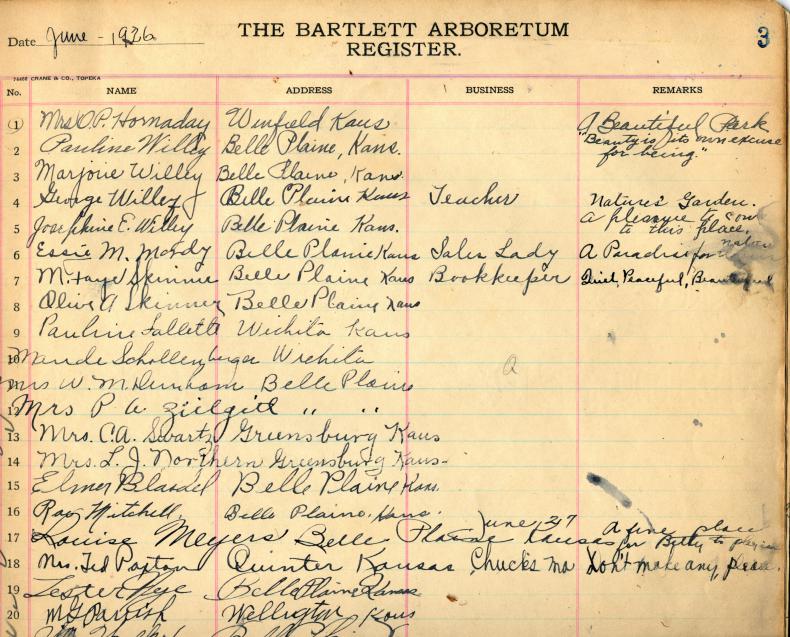 Date June - 1926
THE BARTLETT ARBORETUM
REGISTER.
3
7446B CRANE & CO., TOPEKA
No. NAME ADDRESS BUSINESS REMARKS
1 Mrs O.P. Hornaday Winfield Kans A Beautiful Park
2 Pauline Willey Belle Plaine, Kans. "Beauty is its own excuse for being."
3 Marjorie Willey Belle Plaine, Kans.
4 George Willey Belle Plaine Kans Teacher Nature's Garden.
5 Josephine E. Willey Belle Plaine Kans. A pleasure to come to this place.
6 Essie M. Mordy Belle Plaine Kans Sales Lady A Paradise for nature
7 M. Faye Skinner Belle Plaine Kans Bookkeeper Quiet, Peaceful, Beautiful
8 Olive A Skinner Belle Plaine Kans
9 Pauline Wichita Kans
10 Maude Schollenberger Wichita
11 Mrs W. M. Dunham Belle Plaine
12 Mrs P. A. " "
13 Mrs. C.A. Swartz Greensburg Kans
14 Mrs. L. J. Northern Greensburg Kans-
15 Elmer Blasdel Belle Plaine Kans.
16 Roy Mitchell, Belle Plaine, Kans.
June 27
17 Louise Meyers Belle Plaine Kansas A fine place for Betty to play in
18 Mrs. Ted Paxton Quinter Kansas Chuck's ma Don't make any, please.
19 Lester Nye Belle Plaine Kansas
20 M G Parrish Wellington Kans